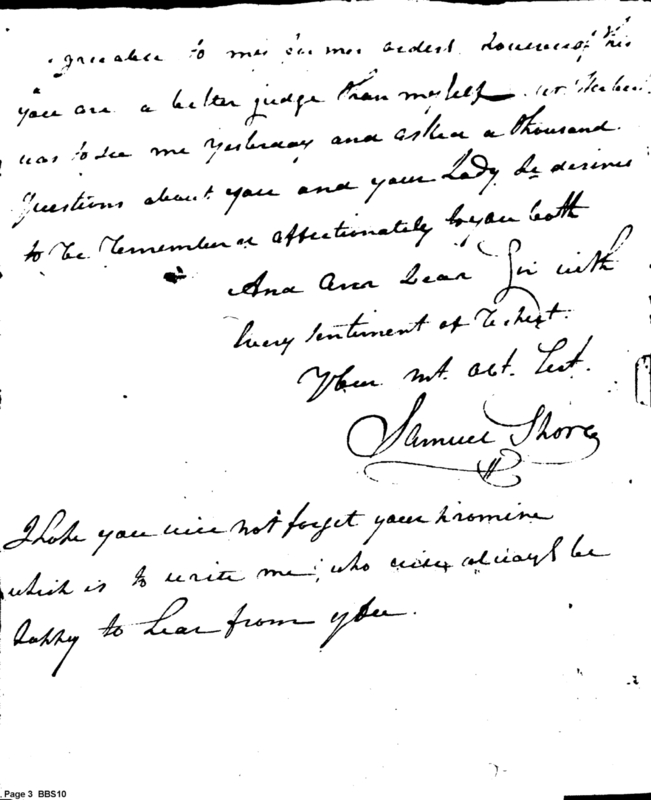 to me
you are a better judge than myself
was to see me yesterday and asked a thousand
Questions about you and your Lady he desires
to be remembered affectionately to you both
And am Dear Sir with
Every sentiment of
Your mt. obt. Sert.
Samuel Shore
I hope you will not forget your promise
which is to write me, who will always be
happy to hear from you.
Page 3 BBS10